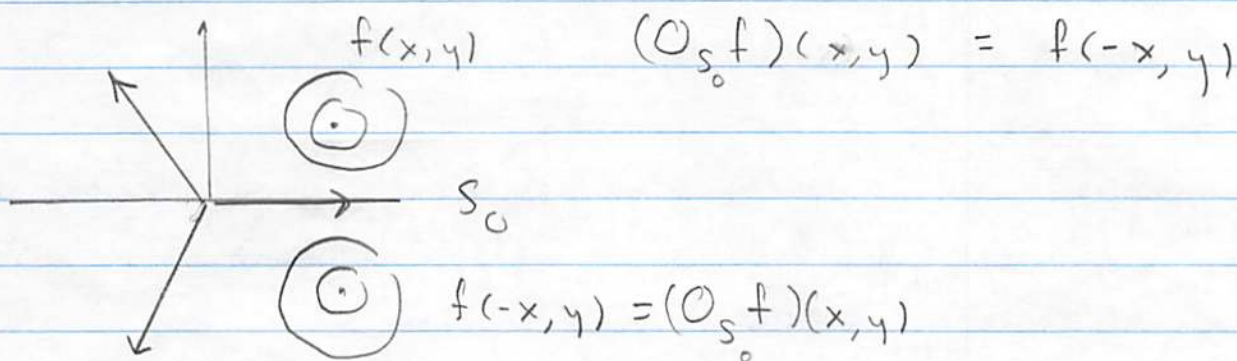 f(x,y) (O_{S_0} f)(x,y) = f(-x, y)
S_0
f(-x, y) = (O_{S_0} f)(x,y)